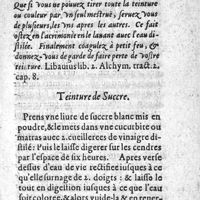 Que si vous ne pouuez tirer toute la teinture
ou couleur par vn seul mestrue, seruez vous
de plusieurs, les vns apres les autres. Ce fait
ostez en l'acrimonie en le lauant auec l'eau di-
stilée. Finalement coagulez à petit feu, &
donnez-vous de garde de faire perte de vostre
teincture. Libauius lib. 2. Alchym. tract. 2.
cap. 8.
Teinture de Succre.
Prens vne liure de succre blanc mis en
poudre, & le mets dans vne cucurbite ou
matras auec 2. cueillerees de vinaigre di-
stilé: Puis le laisse digerer sur les cendres
par l'espace de six heures. Apres verse
dessus d'eau de vie rectifiee iusques à ce
qu'elle surnage de 2. doigts: & laisse le
tout en digestion iusques à ce que l'eau
soit coloree, & alors vuide-la & en remet-